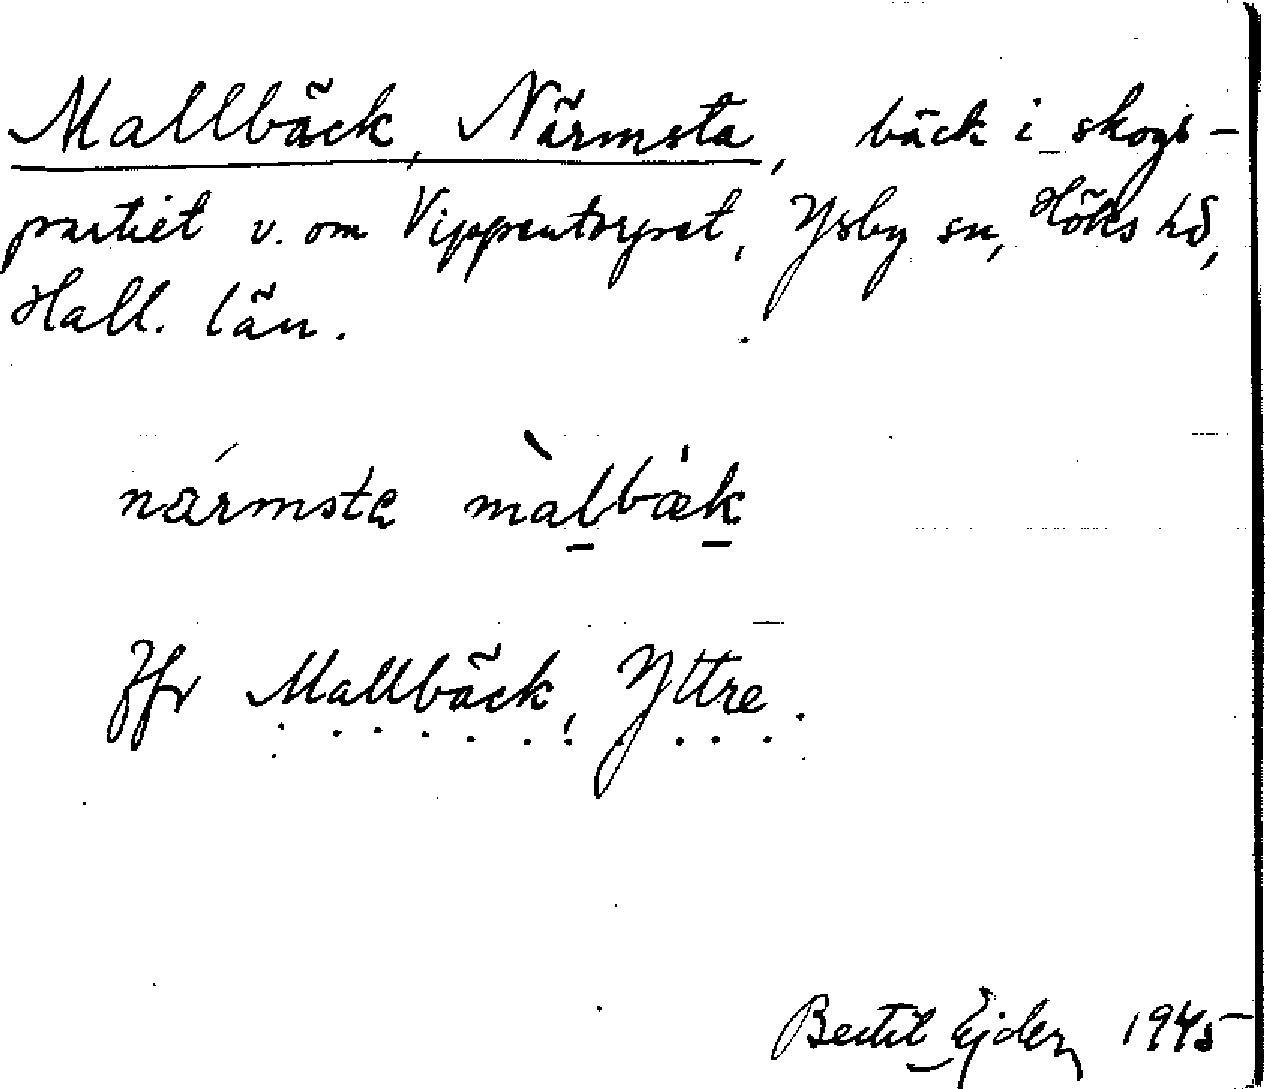 Mallbäck, Närmsta, bäck i skogs-
partiet v. om Vippentorpet, Ysby sn, Höks hd,
Hall. län.
närmsta màlbæk
Jfr Mallbäck, Yttre.
Bertil Ejder 1945